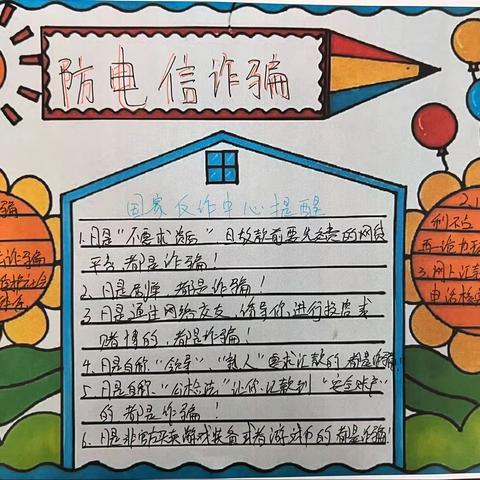 防电信诈骗
国家反诈中心提醒
1.凡是“不要求资质”且放款前要先交费的网贷
平台,都是诈骗!
2.凡是刷单,都是诈骗!
3.凡是通过网络交友,诱导你进行投资或
赌博的,都是诈骗!
4.凡是自称“领导”、“熟人”要求汇款的都是诈骗!
5.凡是自称“公检法”让你汇款到“安全账户”
的都是诈骗!
6.凡是非官方买卖游戏装备或者游戏币的都是诈骗!
骗
诈骗
2.1
3.网上汇
电话核